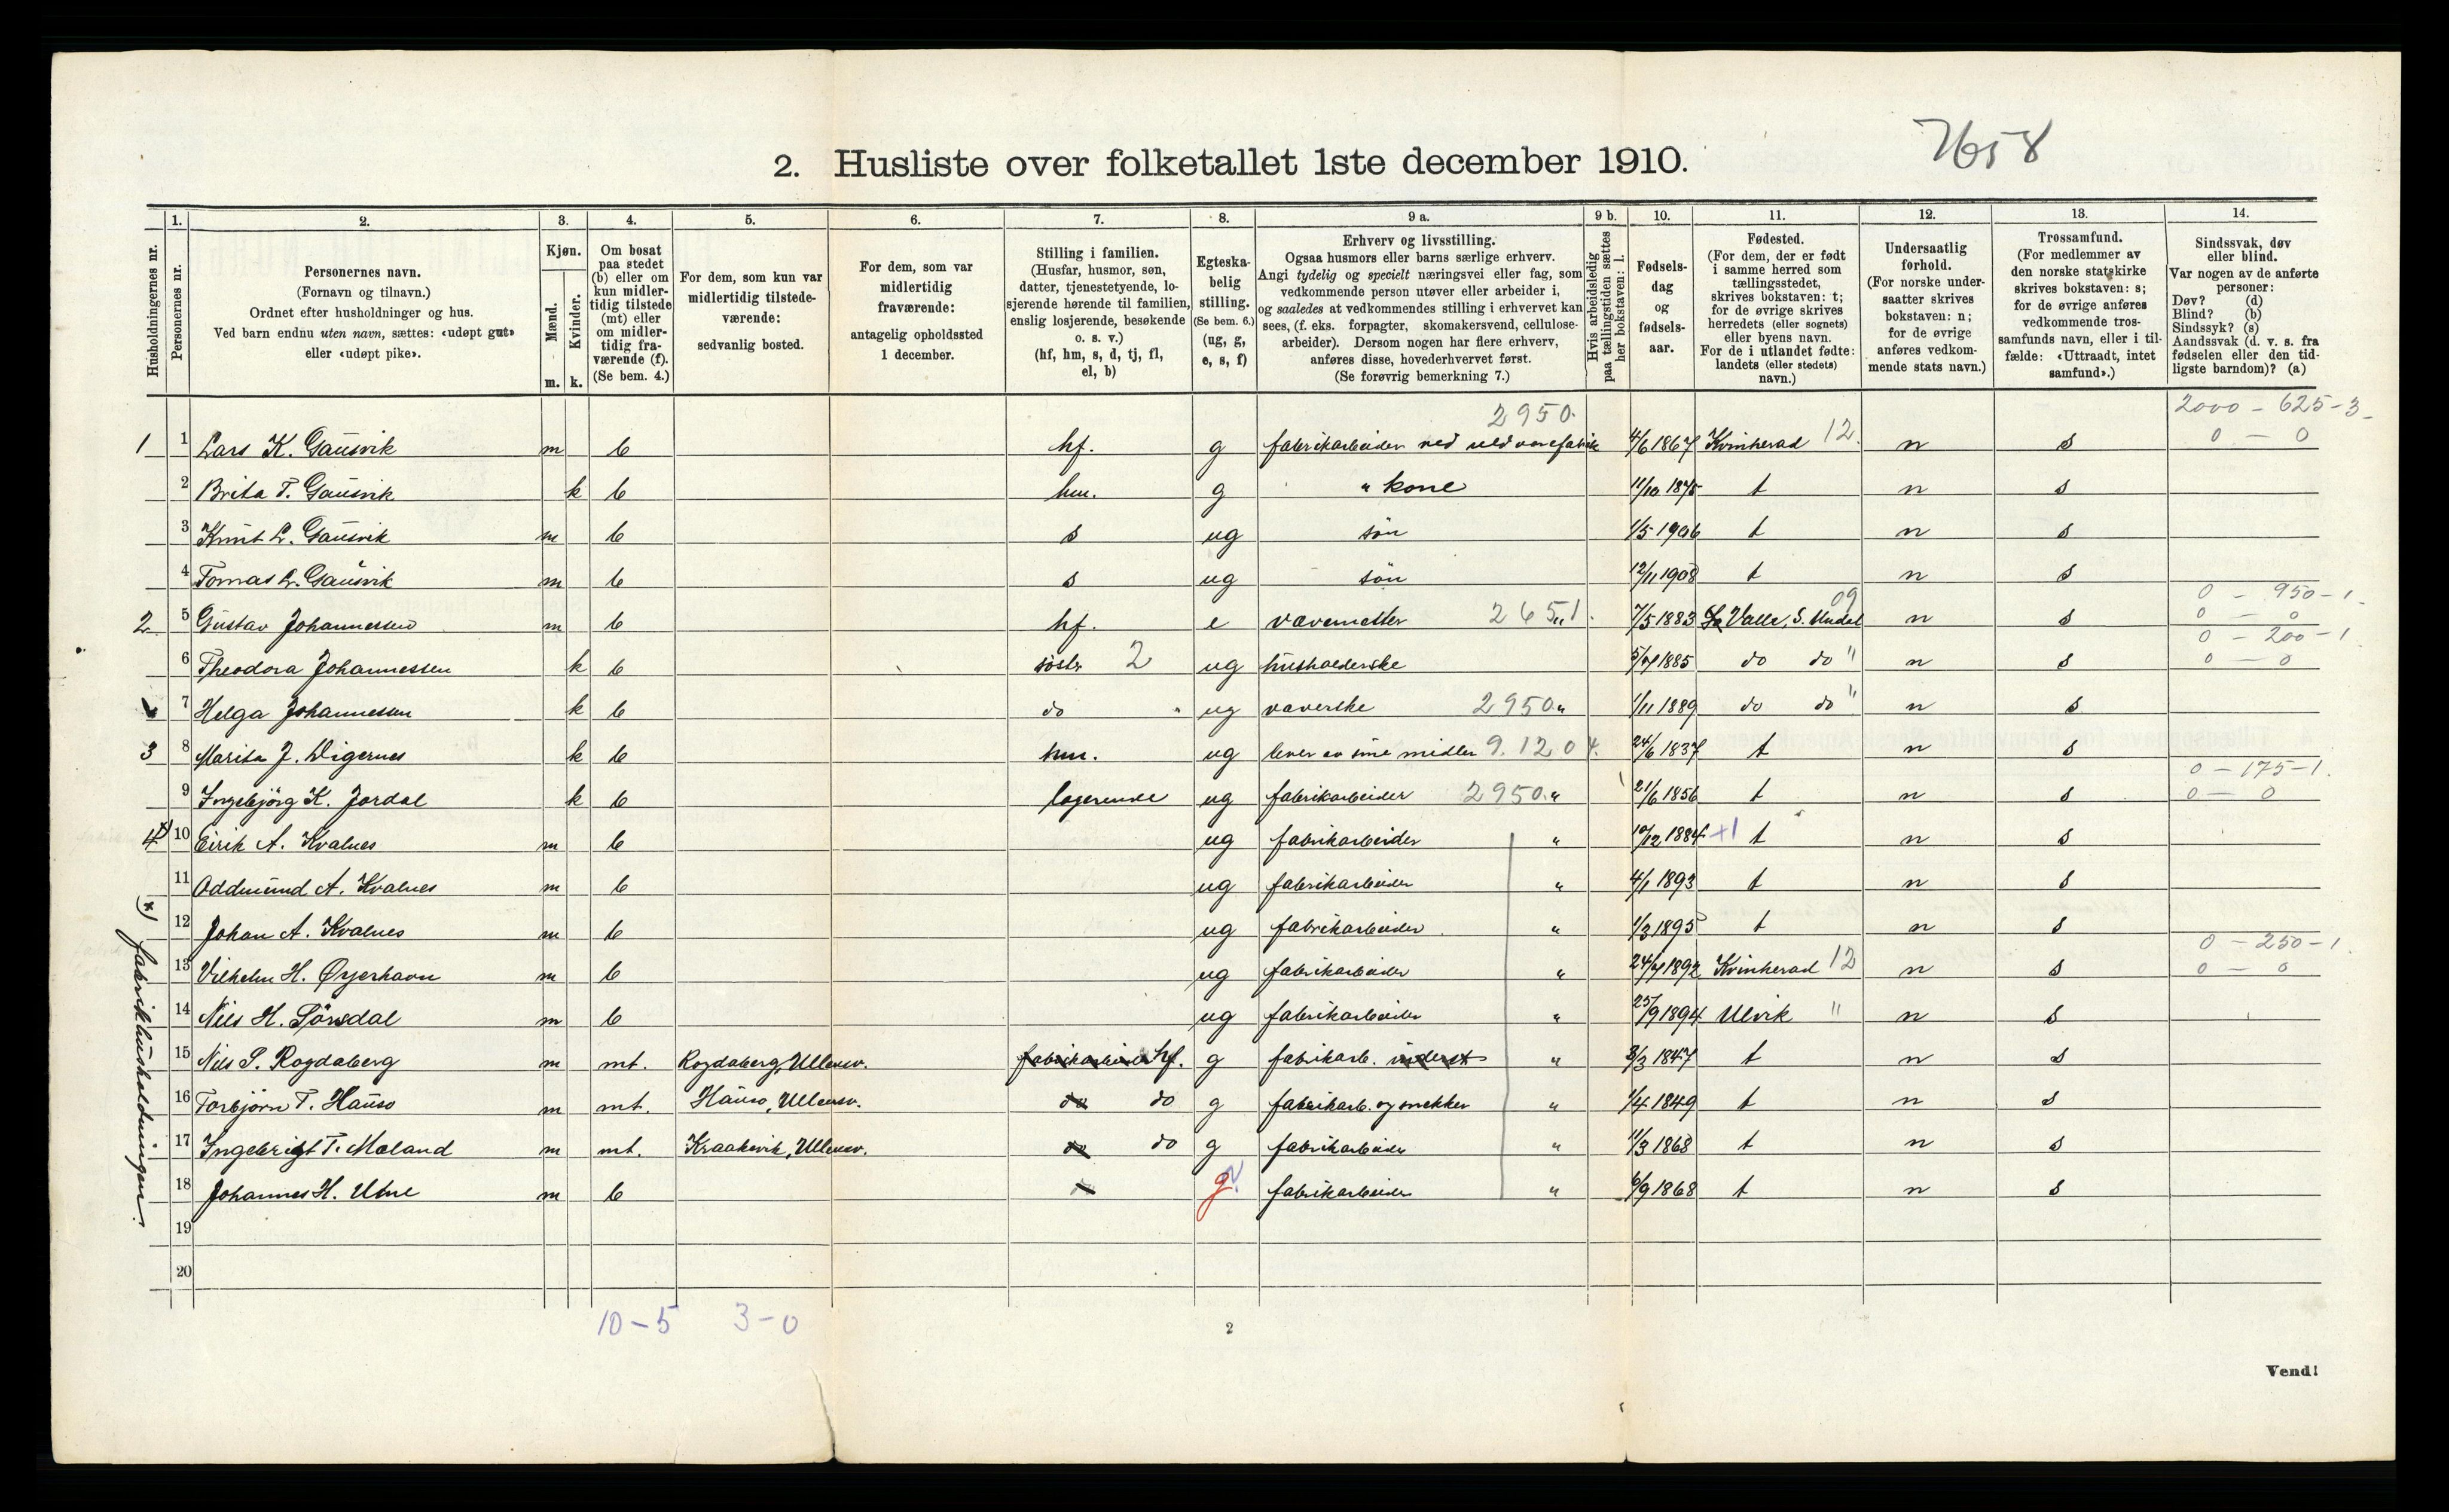 7658
2. Husliste over folketallet 1ste december 1910.
Husholdningernes nr.
1. Personernes nr.
2. Personernes navn. (Fornavn og tilnavn.) Ordnet efter husholdninger og hus. Ved barn endnu uten navn, sættes: «udøpt gut» eller «udøpt pike».
3. Kjøn. Mænd. m. Kvinder. k.
4. Om bosat paa stedet (b) eller om kun midler-tidig tilstede (mt) eller om midler-tidig fra-værende (f). (Se bem. 4.)
5. For dem, som kun var midlertidig tilstede-værende: sedvanlig bosted.
6. For dem, som var midlertidig fraværende: antagelig opholdssted 1 december.
7. Stilling i familien. (Husfar, husmor, søn, datter, tjenestetyende, lo-sjerende hørende til familien, enslig losjerende, besøkende o. s. v.) (hf, hm, s, d, tj, fl, el, b)
8. Egteska-belig stilling. (Se bem. 6.) (ug, g, e, s, f)
9 a. Erhverv og livsstilling. Ogsaa husmors eller barns særlige erhverv. Angi tydelig og specielt næringsvei eller fag, som vedkommende person utøver eller arbeider i, og saaledes at vedkommendes stilling i erhvervet kan sees, (f. eks. forpagter, skomakersvend, cellulose-arbeider). Dersom nogen har flere erhverv, anføres disse, hovederhvervet først. (Se forøvrig bemerkning 7.)
9 b. Hvis arbeidsledig paa tællingstiden sættes her bokstaven: l.
10. Fødsels-dag og fødsels-aar.
11. Fødested. (For dem, der er født i samme herred som tællingsstedet, skrives bokstaven: t; for de øvrige skrives herredets (eller sognets) eller byens navn. For de i utlandet fødte: landets (eller stedets) navn.)
12. Undersaatlig forhold. (For norske under-saatter skrives bokstaven: n; for de øvrige anføres vedkom-mende stats navn.)
13. Trossamfund. (For medlemmer av den norske statskirke skrives bokstaven: s; for de øvrige anføres vedkommende tros-samfunds navn, eller i til-fælde: «Uttraadt, intet samfund».)
14. Sindssvak, døv eller blind. Var nogen av de anførte personer: Døv? (d) Blind? (b) Sindssyk? (s) Aandssvak (d. v. s. fra fødselen eller den tid-ligste barndom)? (a)
2950. 2000 - 625 - 3
1 1 Lars K. Gausvik m b hf. g fabrikarbeider ved uldvarefabrik 4/6 1867 Kvinherad 12. n s 0 - 0
2 Brita T. Gausvik k b hm. g " kone 11/10 1875 t n s
3 Knut L. Gausvik m b s ug sön 1/5 1906 t n s
4 Tomas L. Gausvik m b s ug sön 12/11 1908 t n s
09 0 - 950 - 1
2 5 Gustav Johannessen m b hf. e vævemester 265.1. 7/5 1883 Valle, S. Undal n s 0 - 0
0 - 200 - 1
6 Theodora Johannessen k b söster 2 ug husholderske 5/7 1885 do do " n s 0 - 0
7 Helga Johannessen k b do " ug væverske 2950. " 1/11 1889 do do " n s
3 8 Marita J. Digernes k b hm. ug lever av sine midler 9.12.04. 24/6 1837 t n s
0 - 175 - 1.
9 Ingebjörg K. Jordal k b logerende ug fabrikarbeider 2950. " 21/6 1856 t n s 0 - 0
4 x) 10 Eirik A. Kvalnes m b ug fabrikarbeider " 10/12 1884 +1 t n s
11 Oddmund A. Kvalnes m b ug fabrikarbeider " 4/1 1893 t n s
12 Johan A. Kvalnes m b ug fabrikarbeider " 1/3 1895 t n s
0 - 250 - 1.
13 Vilhelm H. Øyerhavn m b ug fabrikarbeider " 24/7 1892 Kvinherad 12 n s 0 - 0
14 Nils H. Sörsdal m b ug fabrikarbeider " 25/9 1894 Ulvik " n s
15 Nils S. Rogdaberg m mt. Rogdaberg, Ullensv. fabrikarbeider hf. g fabrikarb. inderst " 3/3 1847 t n s
16 Torbjörn T. Hauso m mt. Hauso, Ullensv. do do g fabrikarb. og snekker " 1/4 1849 t n s
17 Ingebrigt T. Mæland m mt. Kraakevik, Ullensv. do do g fabrikarbeider " 11/3 1868 t n s
18 Johannes H. Utne m b g? fabrikarbeider " 6/9 1868 t n s
19
20
x) fabrikhusholdningen.
10 - 5 3 - 0
2
Vend!